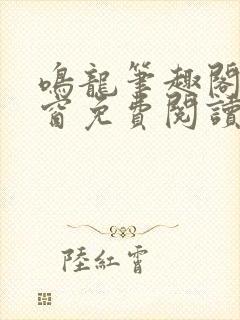 鳴龍筆趣閣
窗免費閱讀
陸紅霄